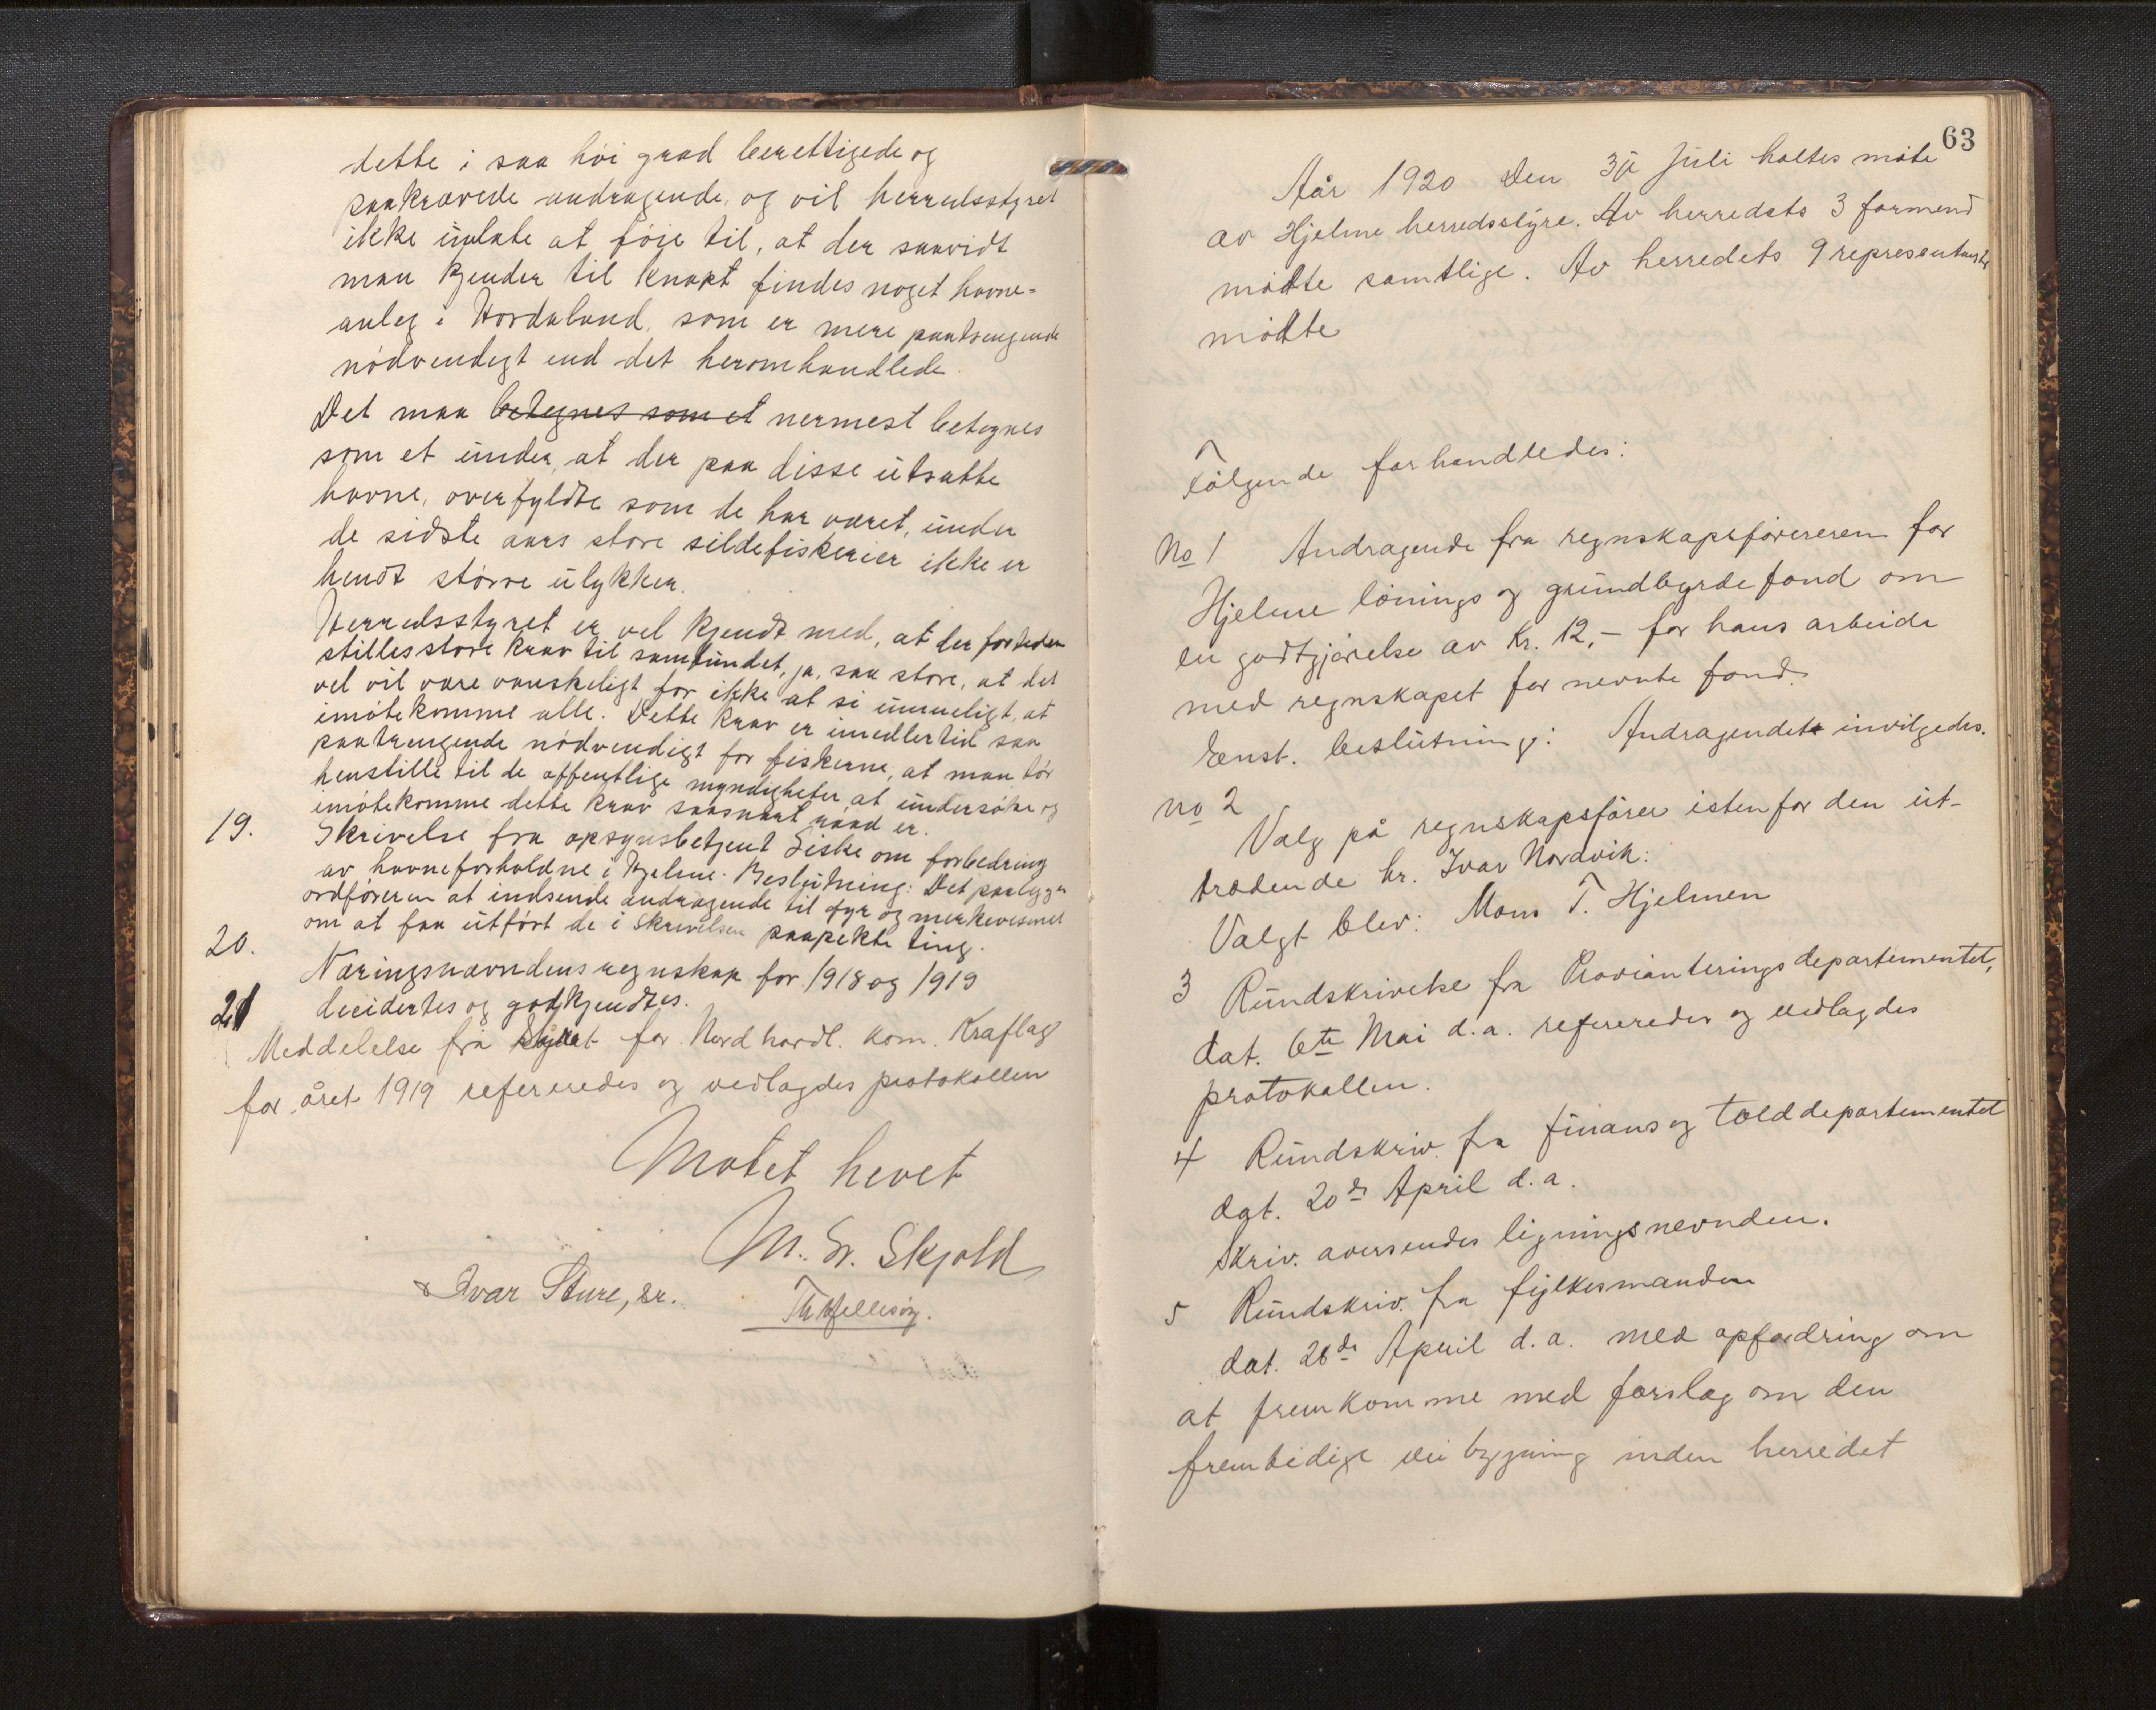 dette i saa høi grad berettigede og
paakrævede andragende, og vil herredsstyret
ikke inlate at føie til, at der saavidt
man kjender til knapt findes noget havne-
anleg i Hordaland, som er mere paatrengende
nødvendigt end det heromhandlede
Det maa betegnes som et nermest betegnes
som et under, at der paa disse utsatte
havne, overfyldte som de har været, under
de sidste aars store sildefiskerier ikke er
hendt større ulykker.
Herredsstyret er vel kjendt med, at der fortiden
stilles store krav til samfundet, ja, saa store, at det
vel vil være vanskeligt for ikke at si umueligt, at
imøtekomme alle. Dette krav er imidlertid saa
paatrengende nødvendigt for fiskerne, at man tør
henstille til de offentlige myndigheter at undersøke og
imøtekomme dette krav saasnart raad er.
19. Skrivelse fra opsynsbetjent Liske om forbedring
av havneforholdne i Hjelme. Beslutning: Det paalegges
ordføreren at indsende andragende til fyr og merkevesenet
om at faa utført de i skrivelsen paapekte ting.
20. Næringsnævndens regnskap for 1918 og 1919
decidertes og godkjendtes.
21 Meddelelse frå styret for Nordhordl. kom. Kraflag
for året 1919 refereredes og vedlagdes protokollen
Møtet hevet
M. Sr. Skjold
Ivar Sture, sr.
63
Aår 1920 den 30 Juli holtes møte
av Hjelme herredsstyre. Av herredets 3 formend
møtte samtlige. Av herredets 9 representanter
møtte
Følgende forhandledes:
No 1 Andragende fra regnskapsførereren for
Hjelme lønings og grundbyrdefond om
en godtgjørelse av Kr. 12,- for hans arbeide
med regnskapet for nevnte fond.
Enst. beslutning: Andragendet invilgedes.
No 2
Valg på regnskapsfører istenfor den ut-
trædende hr. Ivar Nordvik:
Valgt blev: Mons T. Hjelmen
3 Rundskrivelse fra Provianteringsdepartementet,
dat. 6te Mai d.a. refereredes og vedlagdes
protokollen.
4 Rundskriv. fra finans og tolddepartementet
dat. 20de April d.a.
Skriv. oversendes ligningsnevnden.
5 Rundskriv. fra fylkesmanden
dat. 28de April d.a. med opfordring om
at fremkomme med forslag om den
fremtidige veibygning inden herredet